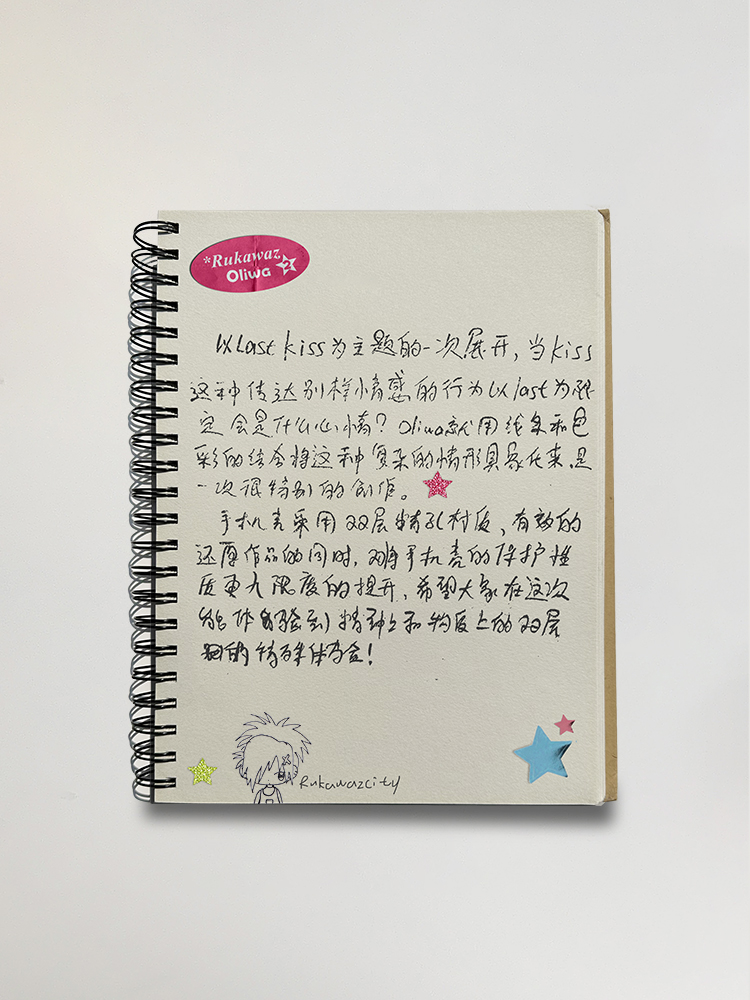 *Rukawaz
Oliwa
以last kiss为主题的一次展开，当kiss
这种传达别样情感的行为以last为限
定会是什么心情？Oliwa就用线条和色
彩的结合将这种复杂的情形具象化来，是
一次很特别的创作。
手机壳采用双层精孔材质，有效的
还原作品的同时，对手机壳的保护性
质更大限度的提升，希望大家在这次
能体验到精神上和物质上的双层
的特殊体会！
Rukawazcity